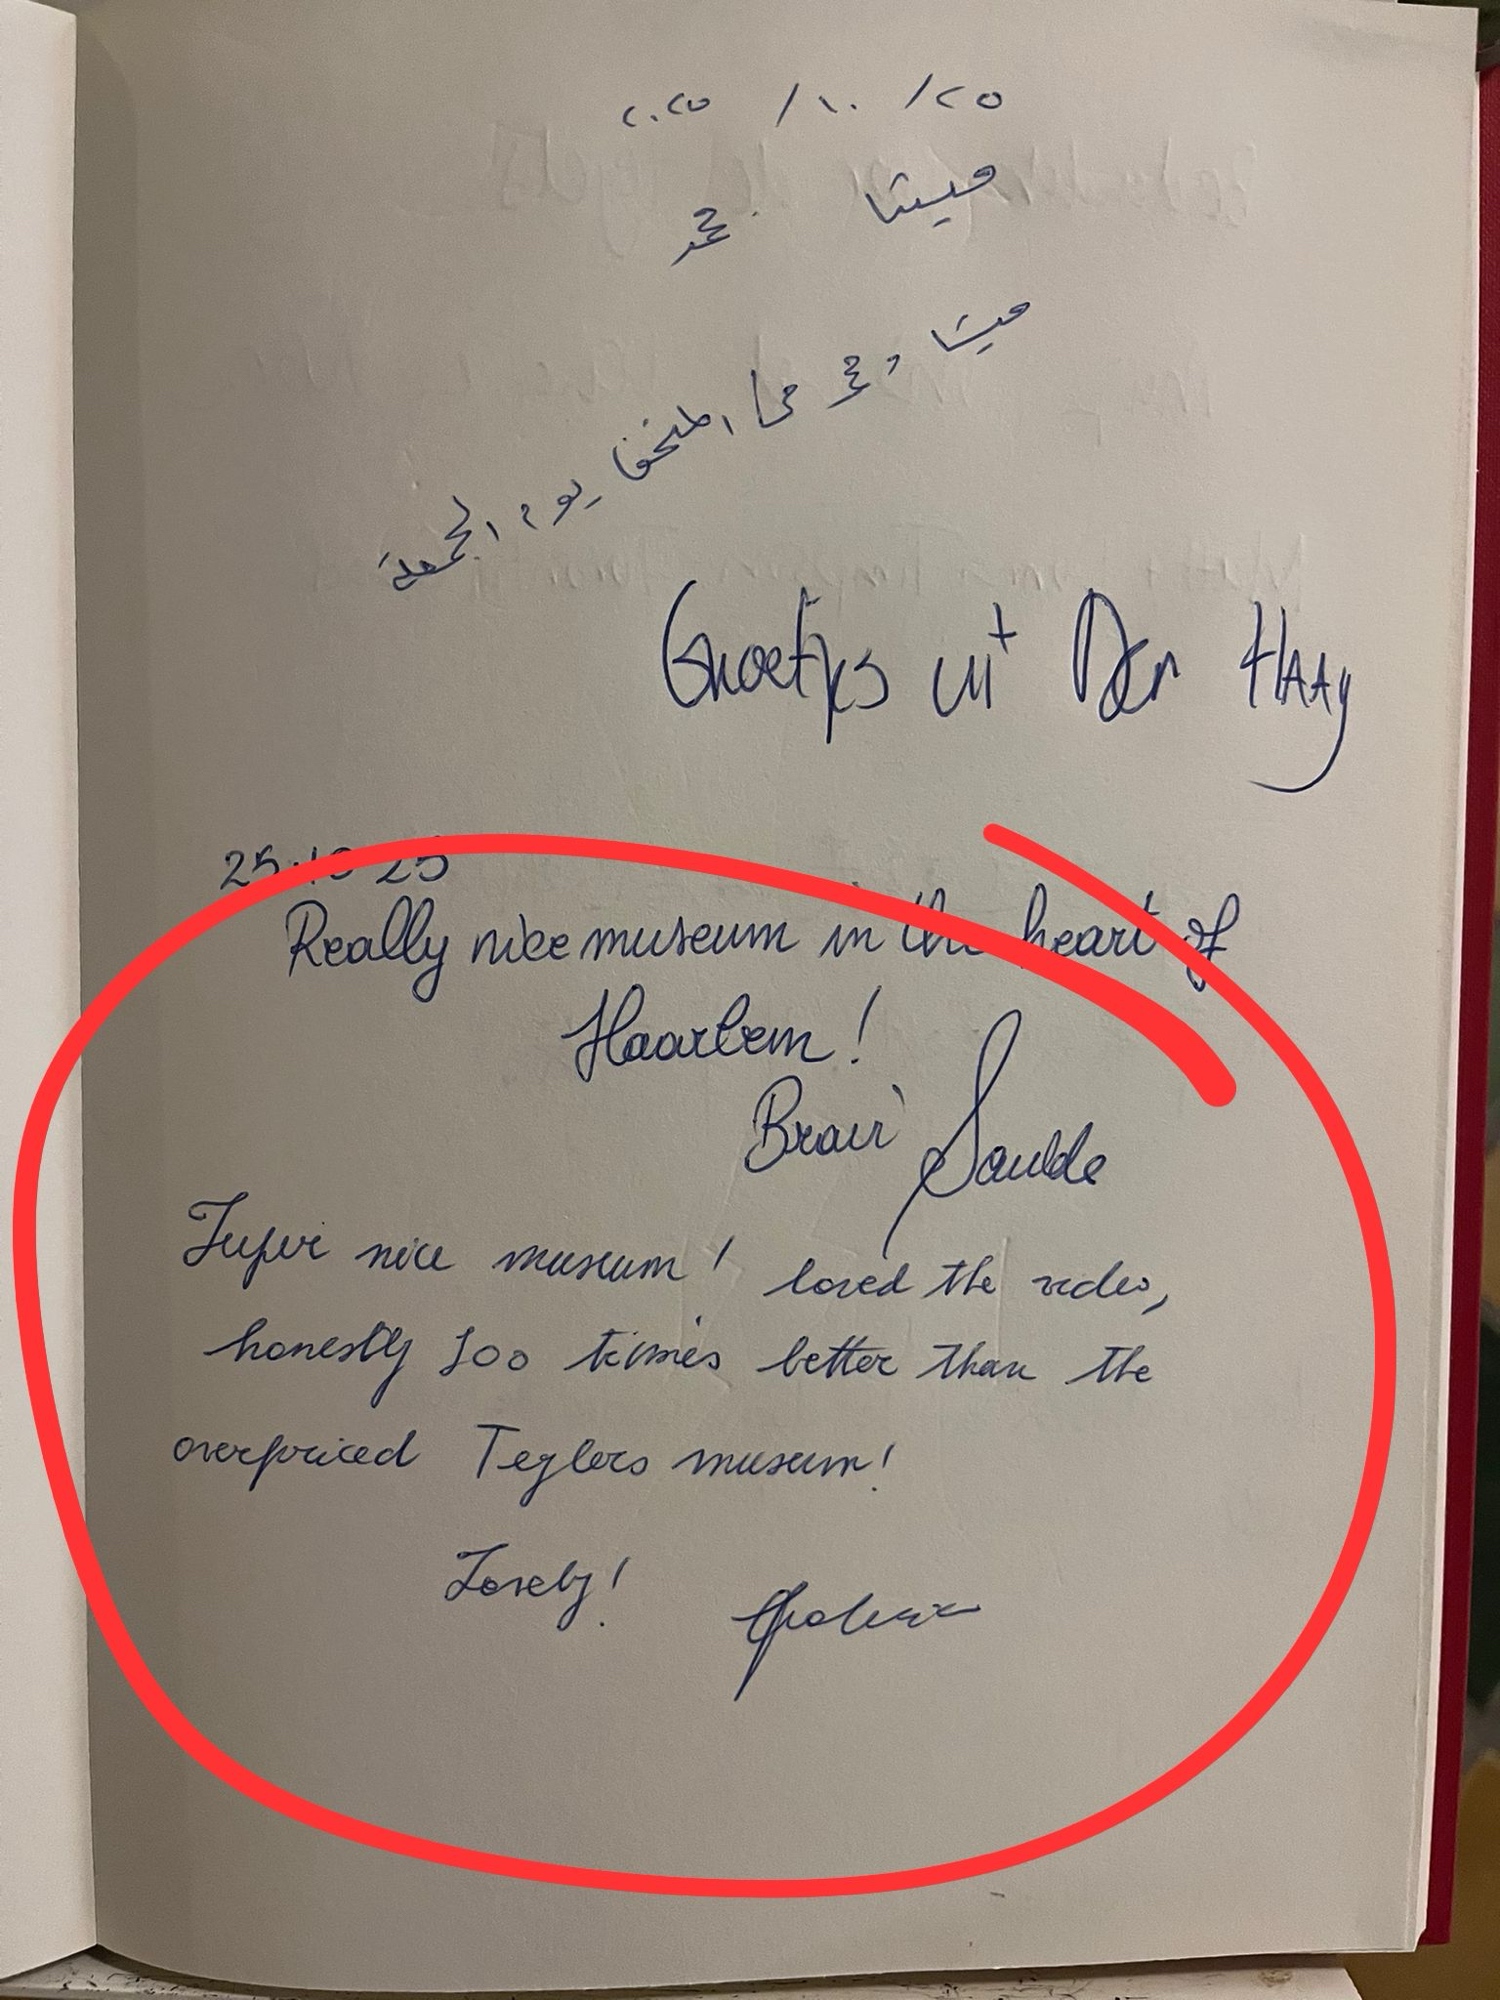 ٢٠٢٥ /١٠ /٢٥
ميشا
ميشا و
يوم الجمعة
Groetjes uit Den HAAg
25.10 25
Really nice museum in the heart of
Haarlem!
Super nice museum! loved the video,
honestly 100 times better than the
overpriced Teylers museum!
Lovely!